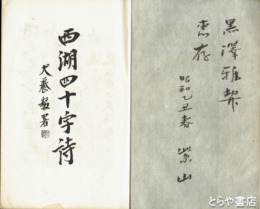 黒澤雅契
恵存
昭和乙丑春 紫山
西湖四十字詩
犬養毅署
とらや書店